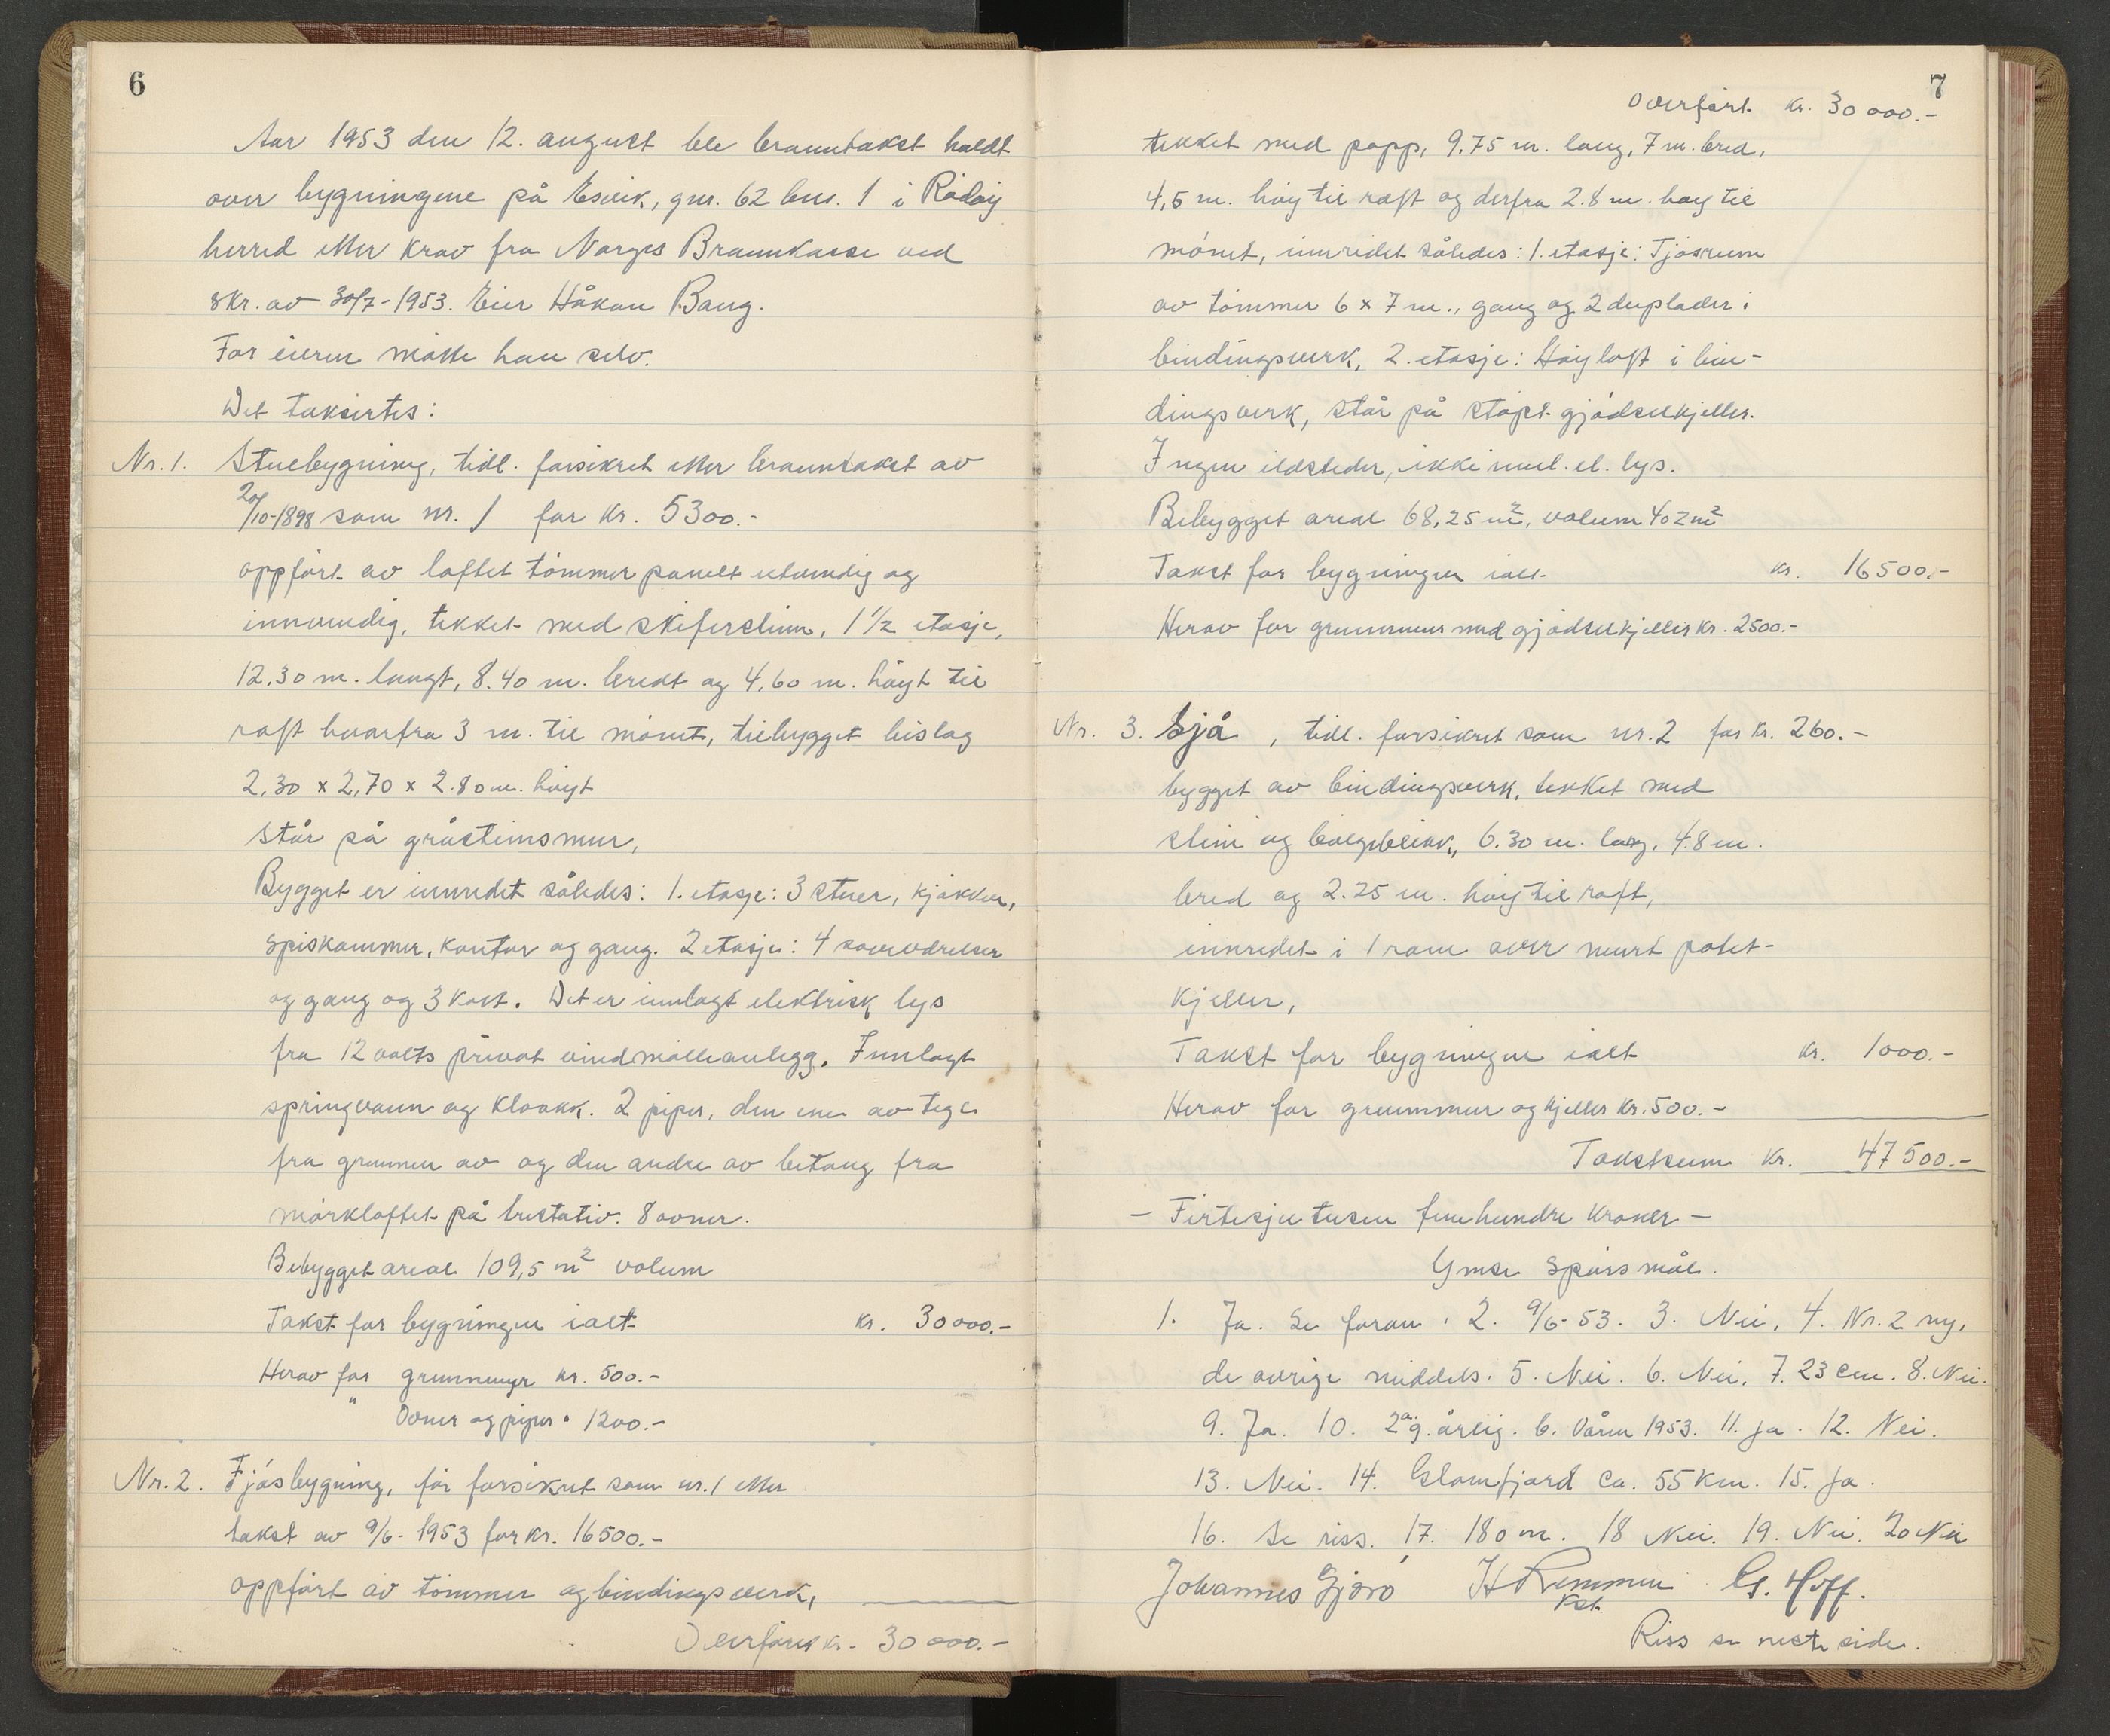 6
Aar 1953 den 12. august ble branntakst holdt
over bygningene på Esvik, gnr. 62 bnr. 1 i Rødøy
herred etter krav fra Norges Brannkasse ved
skr. av 30/7-1953. Eier Håkon Bang.
For eieren møtte han selv.
Det taksertes:
Nr. 1. Stuebygning, tidl. forsikret etter branntakst av
20/10-1898 som nr. 1 for kr. 5300.-
oppført av laftet tømmer panelt utvendig og
innvendig, tekket med skiferstein, 1 1/2 etasje,
12.30 m. langt, 8.40 m. bredt og 4,60 m. høyt til
raft hvorfra 3 m. til mønet, tilbygget bislag
2,30 x 2,70 x 2.80 m. høyt
står på gråsteinsmur,
Bygget er innredet således: 1. etasje: 3 stuer, kjøkken,
spiskammer, kontor og gang. 2 etasje: 4 soveværelser
og gang og 3 kott. Det er innlagt elektrisk lys
fra 12 volts privat vindmølleanlegg. Innlagt
springvann og kloakk. 2 piper, den ene av tegl
fra grunnen av og den andre av betong fra
mørkloftet på trestativ. 8 ovner.
Bebygget areal 109,5 m² volum
Takst for bygningen ialt kr. 30000.-
Herav for grunnmur kr. 500.-
" Ovner og piper " 1200.-
Nr. 2. Fjøsbygning, før forsikret som nr. 1 etter
takst av 9/6-1953 for kr. 16500.-
oppført av tømmer og bindingsverk,
Overføres kr. 30 000.-
7
Overført kr. 30 000.-
tekket med papp, 9.75 m. lang, 7 m. bred,
4,5 m. høy til raft og derfra 2.8 m. høy til
mønet, innredet således: 1. etasje: Fjøsrum
av tømmer 6 x 7 m., gang og 2 duplader i
bindingsverk, 2. etasje: Høyloft i bin-
dingsverk, står på støpt gjødselkjeller.
Ingen ildsteder, ikke innl. el. lys.
Bebygget areal 68,25 m², volum 402 m²
Takst for bygningen ialt kr. 16500.-
Herav for grunnmur med gjødselkjeller kr. 2500.-
Nr. 3. Sjå, tidl. forsikret som nr. 2 for kr. 260.-
bygget av bindingsverk, tekket med
stein og bølgeblikk, 6.30 m. lang, 4.8 m.
bred og 2.25 m. høy til raft,
innredet i 1 rom over murt potet-
kjeller,
Takst for bygningen ialt kr. 1000.-
Herav for grunnmur og kjeller kr. 500.-
Takstsum kr. 47500.-
- Førtisju tusen fem hundre kroner -
Ymse spørsmål.
1. Ja. Se foran. 2. 9/6-53. 3. Nei. 4. Nr. 2 ny,
de øvrige middels. 5. Nei. 6. Nei. 7. 23 cm. 8. Nei.
9. Ja. 10. 2 g. årlig. b. Våren 1953. 11. Ja. 12. Nei.
13. Nei. 14. Glomfjord ca. 55 km. 15. Ja.
16. Se riss. 17. 180 m. 18 Nei. 19. Nei. 20 Nei
Johannes Gjørø H Remmen G. Hoff.
Riss se neste side.